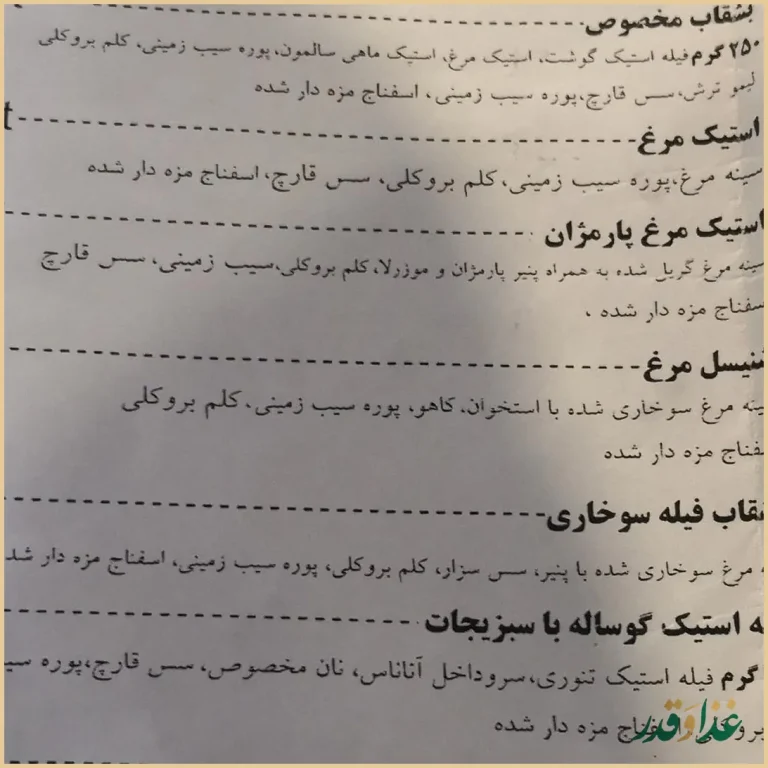 بشقاب مخصوص
۲۵۰ گرم فیله استیک گوشت، استیک مرغ، استیک ماهی سالمون، پوره سیب زمینی، کلم بروکلی
لیمو ترش، سس قارچ، پوره سیب زمینی، اسفناج مزه دار شده
استیک مرغ
سینه مرغ، پوره سیب زمینی، کلم بروکلی، سس قارچ، اسفناج مزه دار شده
استیک مرغ پارمژان
سینه مرغ گریل شده به همراه پنیر پارمژان و موزرلا، کلم بروکلی، سیب زمینی، سس قارچ
سفناج مزه دار شده ،
شنیسل مرغ
ینه مرغ سوخاری شده با استخوان، کاهو، پوره سیب زمینی، کلم بروکلی
فناج مزه دار شده
قاب فیله سوخاری
مرغ سوخاری شده با پنیر، سس سزار، کلم بروکلی، پوره سیب زمینی، اسفناج مزه دار شد
ه استیک گوساله با سبزیجات
گرم فیله استیک تنوری، سرو داخل آناناس، نان مخصوص، سس قارچ، پوره سی
بروکلی، اسفناج مزه دار شده
غذا و قدر